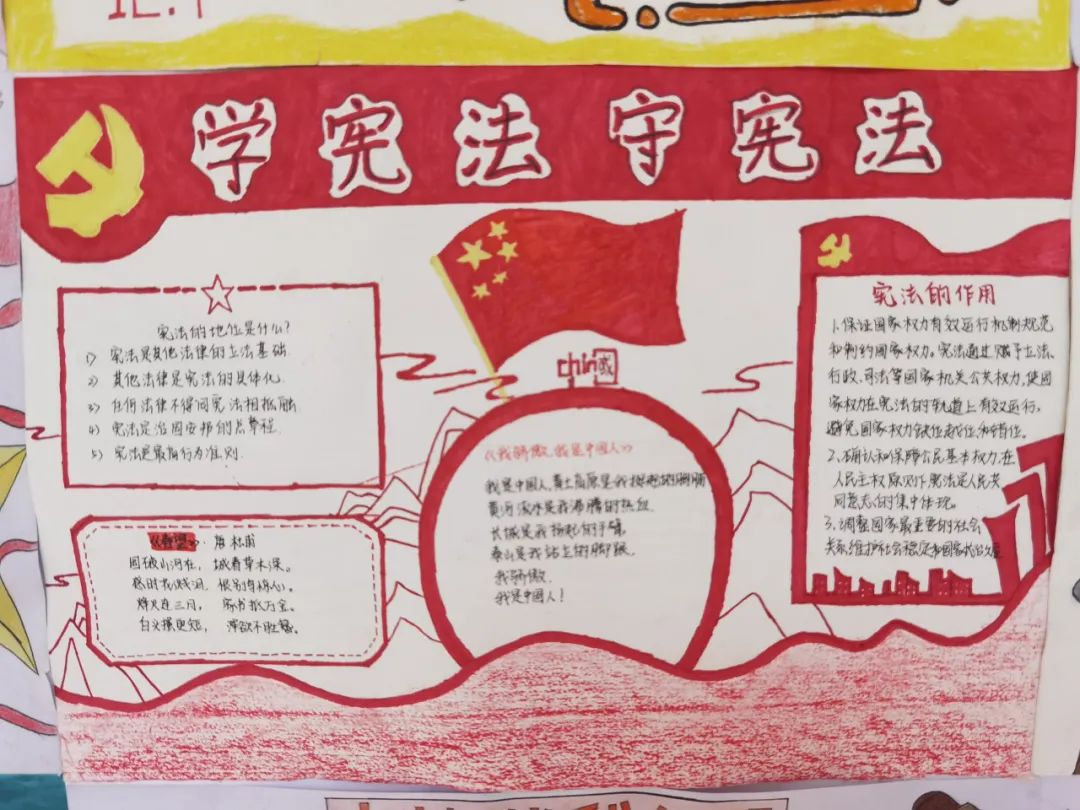 12.4
学宪法守宪法
宪法的地位是什么?
1) 宪法是其他法律的立法基础.
2) 其他法律是宪法的具体化.
3) 任何法律不得同宪法相抵触
4) 宪法是治国安邦的总章程.
5) 宪法是最高行为准则.
《春望》. 唐 杜甫
国破山河在, 城春草木深。
感时花溅泪, 恨别鸟惊心。
烽火连三月, 家书抵万金。
白头搔更短, 浑欲不胜簪。
china
《我骄傲,我是中国人》
我是中国人,黄土高原是我挺起的胸脯
黄河流水是我沸腾的热血.
长城是我扬起的手臂.
泰山是我站立的脚跟.
我骄傲.
我是中国人!
宪法的作用
1.保证国家权力有效运行机制规范
和制约国家权力。宪法通过赋予立法、
行政、司法等国家机关公共权力,使国
家权力在宪法的轨道上有效运行,
避免国家权力缺位越位,和错位。
2.确认和保障公民基本权力,在
人民主权原则下,宪法是人民共
同意志的集中体现。
3.调整国家最重要的社会
关系,维护社会稳定和国家